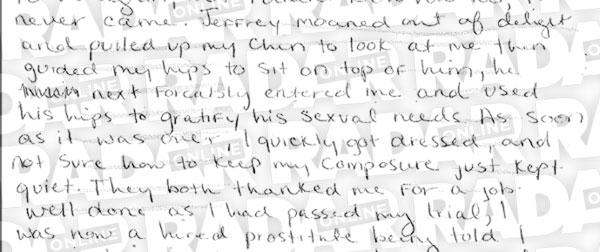 never came. Jeffrey moaned out of delight
and pulled up my chin to look at me then
guided my hips to sit on top of him, he
next forcably entered me and used
his hips to gratify his sexual needs. As soon
as it was over, I quickly got dressed, and
not sure how to keep my composure just kept
quiet. They both thanked me for a job
well done as I had passed my trial, I
was now a hired prostitute being told I
RADAR ONLINE